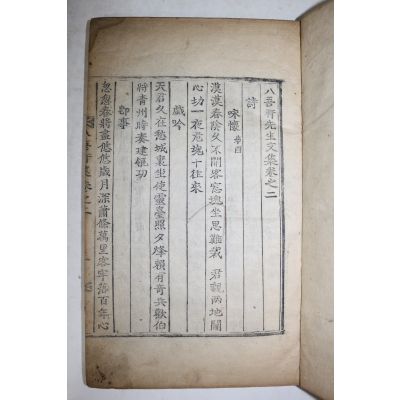 八吾軒先生文集卷之二
詩
咏懷
漠漠春陰久不開客窓塊坐思難裁 君親兩地關
心切一夜危魂十往來
戱吟
天君久在愁城裏坐使靈臺照夕烽賴有奇兵歡伯
將靑州時奏建瓴功
卽事
忽忽春將盡悠悠歲月深蕭條萬里客牢落百年心
八吾軒集卷之二